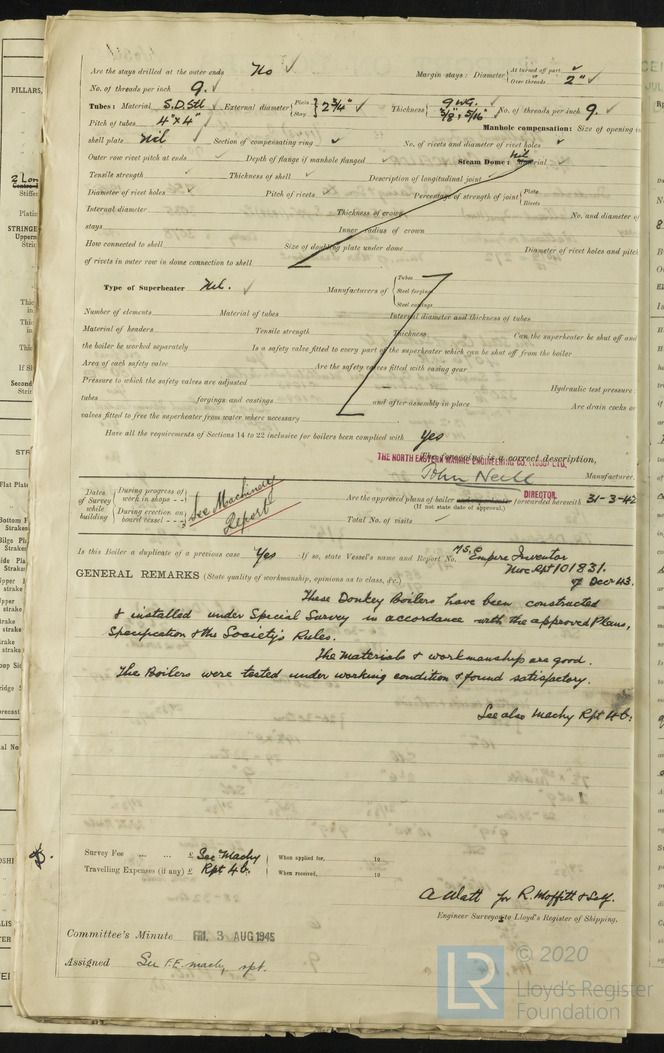 Are the stays drilled at the outer ends No ✓ Margin stays: Diameter { At turned off part ✓ Over threads 2" ✓
No. of threads per inch 9. ✓
Tubes: Material S.D. Stl ✓ External diameter { Plain Stay } 2 3/4" ✓ Thickness { 9 WG. 3/8 & 5/16" ✓ No. of threads per inch 9. ✓
Pitch of tubes 4" x 4" ✓ Manhole compensation: Size of opening in
shell plate Nil ✓ Section of compensating ring ✓ No. of rivets and diameter of rivet holes ✓
Outer row rivet pitch at ends ✓ Depth of flange if manhole flanged ✓ Steam Dome: Material Nil ✓
Tensile strength ✓ Thickness of shell ✓ Description of longitudinal joint ✓
Diameter of rivet holes ✓ Pitch of rivets ✓ Percentage of strength of joint { Plate Rivets
Internal diameter Thickness of crown No. and diameter of
stays Inner radius of crown
How connected to shell Size of doubling plate under dome Diameter of rivet holes and pitch
of rivets in outer row in dome connection to shell
Type of Superheater Nil. ✓ Manufacturers of { Tubes Steel forgings Steel castings
Number of elements Material of tubes Internal diameter and thickness of tubes
Material of headers Tensile strength Thickness Can the superheater be shut off and
the boiler be worked separately Is a safety valve fitted to every part of the superheater which can be shut off from the boiler
Area of each safety valve Are the safety valves fitted with easing gear
Pressure to which the safety valves are adjusted Hydraulic test pressure
tubes forgings and castings and after assembly in place Are drain cocks or
valves fitted to free the superheater from water where necessary
Have all the requirements of Sections 14 to 22 inclusive for boilers been complied with Yes
The foregoing is a correct description,
THE NORTH EASTERN MARINE ENGINEERING CO. (1938) LTD.
John Neill Manufacturer.
DIRECTOR.
Dates of Survey while building { During progress of work in shops - - During erection on board vessel - - - } See Machinery Report
Are the approved plans of boiler forwarded herewith 31-3-42
(If not state date of approval.)
Total No. of visits ✓
Is this Boiler a duplicate of a previous case Yes If so, state Vessel's name and Report No. M.S. Empire Inventor
Nwc Rpt 101831.
of Dec 43.
GENERAL REMARKS (State quality of workmanship, opinions as to class, &c.)
These Donkey Boilers have been constructed
& installed under Special Survey in accordance with the approved Plans,
Specification & the Society's Rules.
The materials & workmanship are good.
The Boilers were tested under working condition & found satisfactory.
See also Machy Rpt 4b.
Survey Fee ... ... £ See Machy When applied for, 19
Travelling Expenses (if any) £ Rpt 4b. When received, 19
A Watt for R. Moffitt & Self.
Engineer Surveyor to Lloyd's Register of Shipping.
Committee's Minute FRI. 3 AUG 1945
Assigned See F.E. machy. rpt.
LR © 2020
Lloyd's Register
Foundation